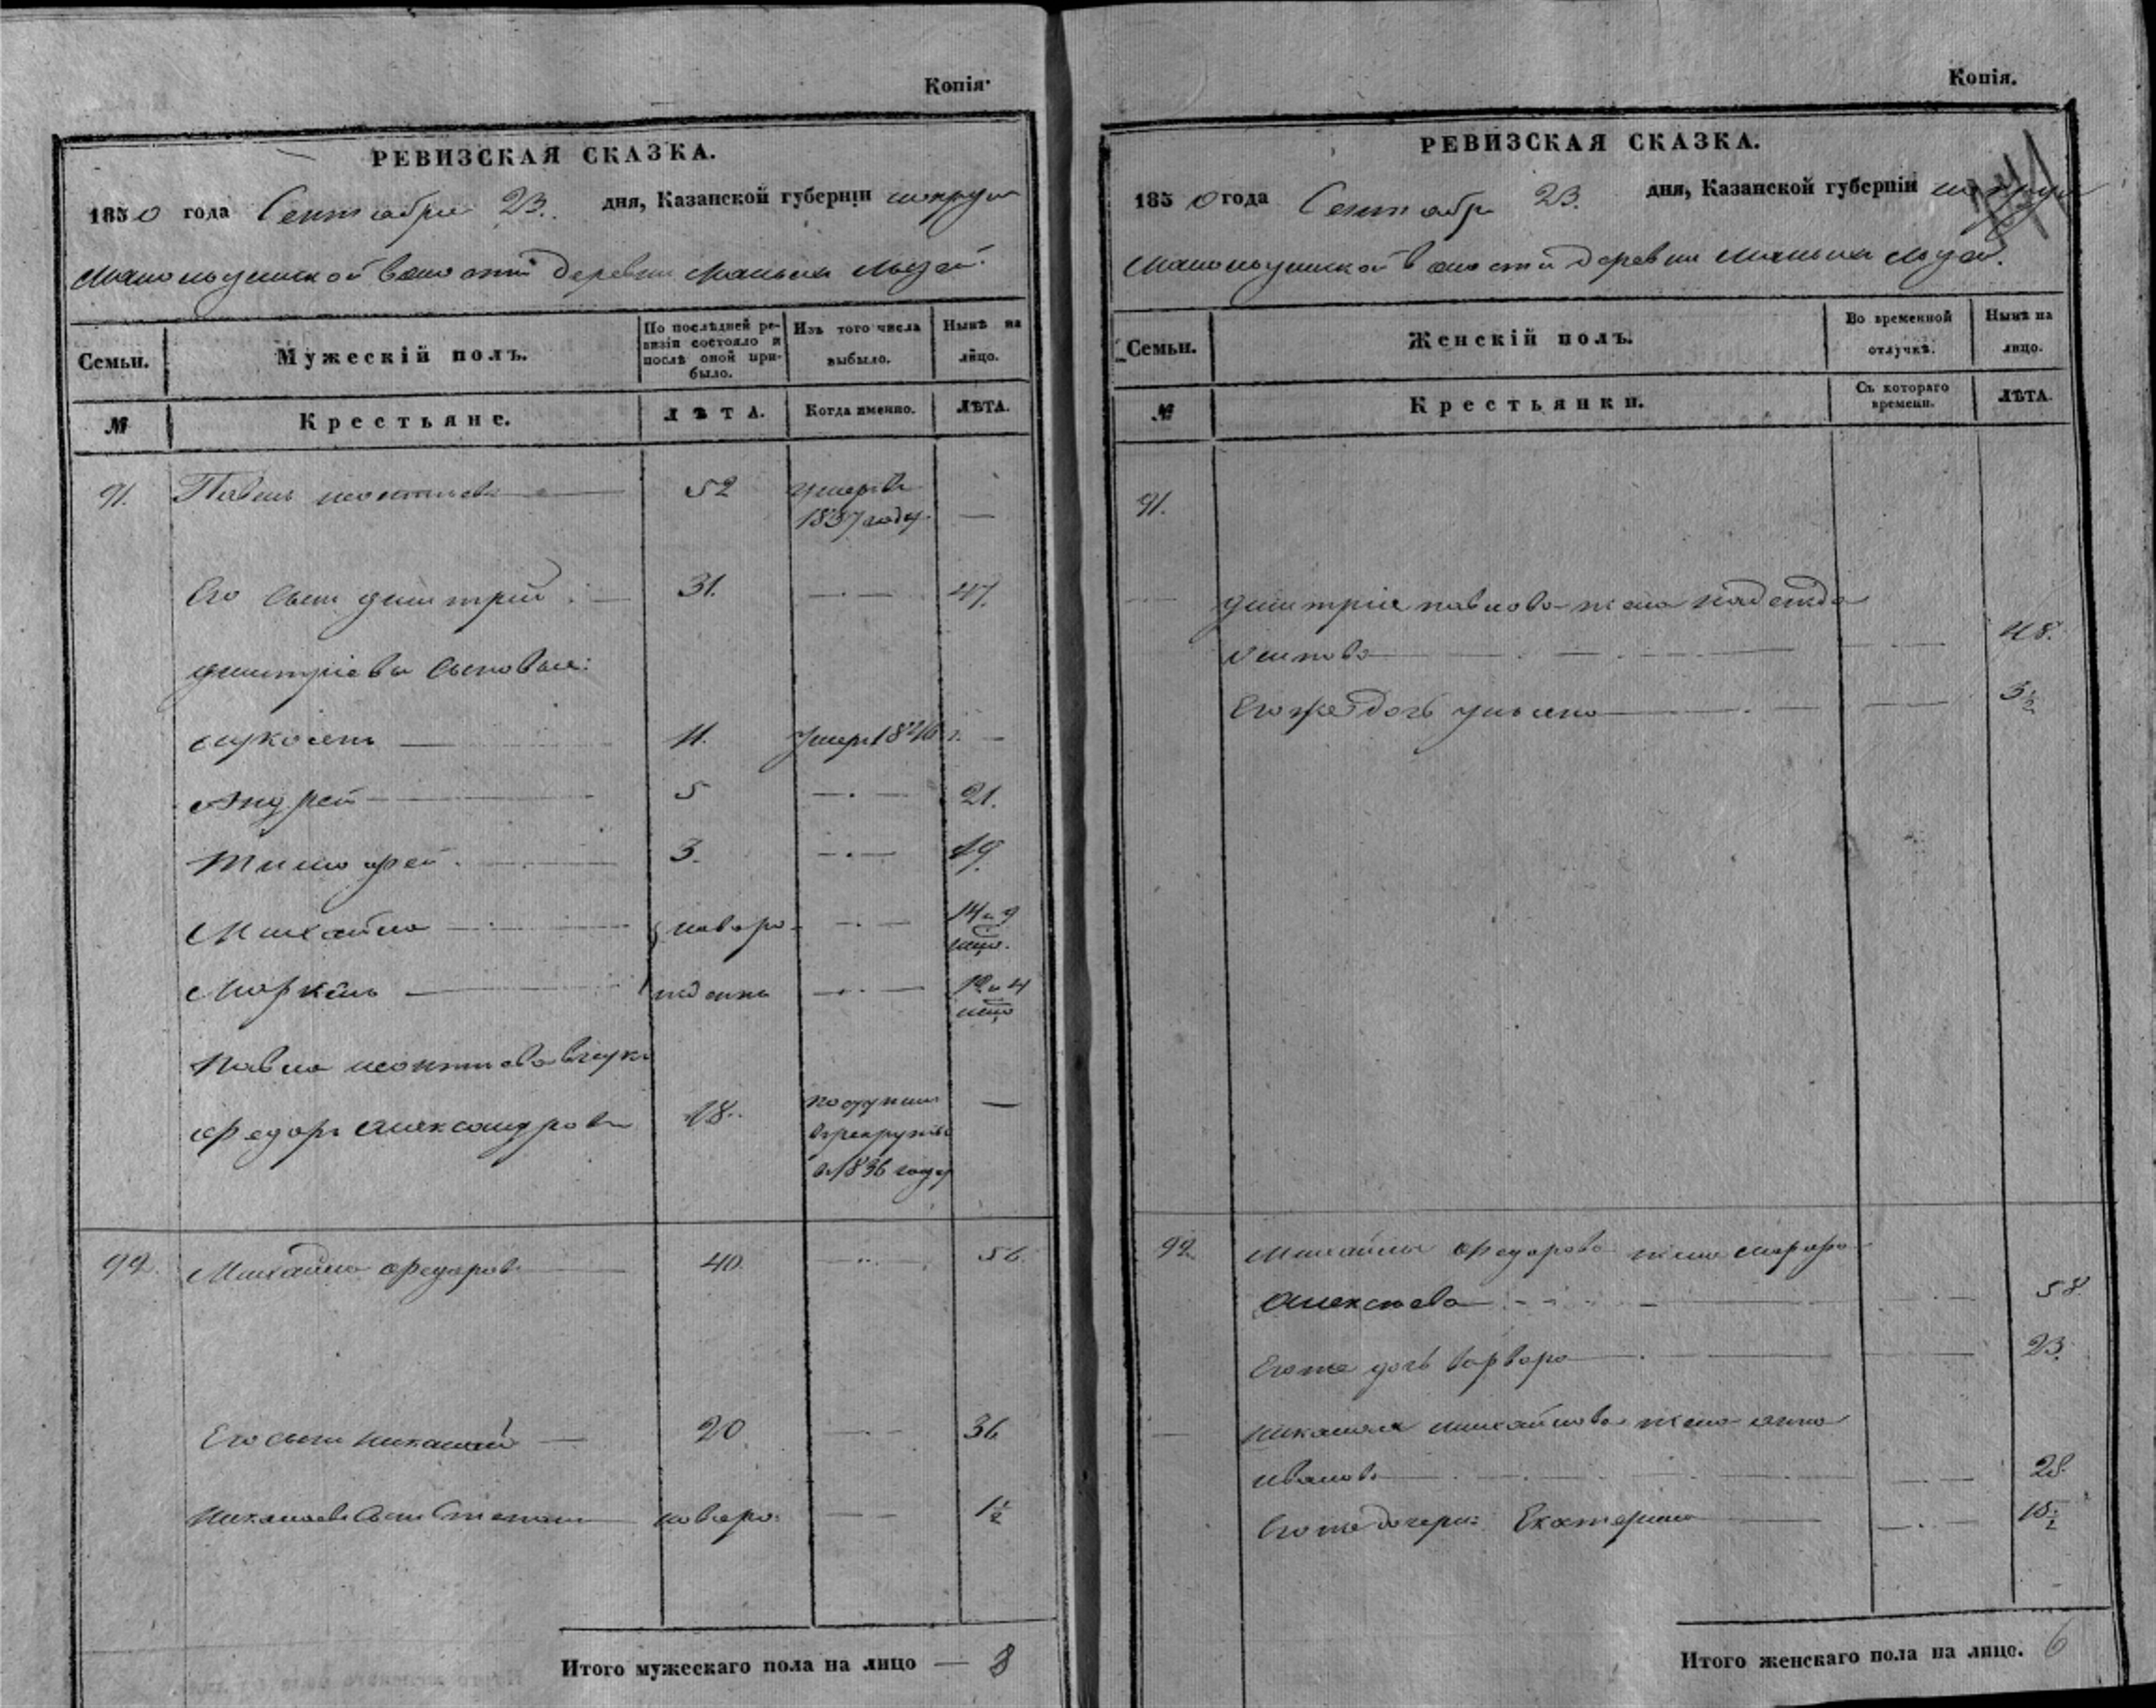 Копія.
РЕВИЗСКАЯ СКАЗКА.
1850 года Сентября 23. дня, Казанской губерніи
волости деревни
Семьи.
Мужескій полъ.
По послѣдней ревизіи состояло и послѣ оной прибыло.
Изъ того числа выбыло.
Нынѣ на лицо.
№
Крестьяне.
ЛѢТА.
Когда именно.
ЛѢТА.
91. Павелъ 52 умеръ въ
1837 году —
Его сынъ Димитрій 31. — 47.
Димитріевы сыновья:
11. умеръ 1840 г. —
Андрей 5 — 21.
Тимофей 3. — 19.
Михайла новоро- — 14 и 9
мѣсяц.
Маркелъ жденны — 12 и 4
мѣсяц
Павла внукъ
Федоръ Александровъ 18. поступилъ —
въ рекруты
въ 1836 году
92. Михайла Федоровъ 40. — 56.
Его сынъ Николай 20 — 36
Николаевъ сынъ Степанъ новоро. — 1½
Итого мужескаго пола на лицо — 8
Копія.
РЕВИЗСКАЯ СКАЗКА.
1850 года Сентября 23. дня, Казанской губерніи
волости деревни
Семьи.
Женскій полъ.
Во временной отлучкѣ.
Нынѣ на лицо.
№
Крестьянки.
Съ котораго времени.
ЛѢТА.
91.
Димитрія Павлова жена Надежда
— 48.
Его же дочь Ульяна — 3½
92. Михайлы Федорова жена Марфа
Алексеева — 58.
Его же дочь Варвара — 23.
Николая Михайлова жена Анна
Иванова — 28.
Его же дочери: Екатерина —
Итого женскаго пола на лицо. 6